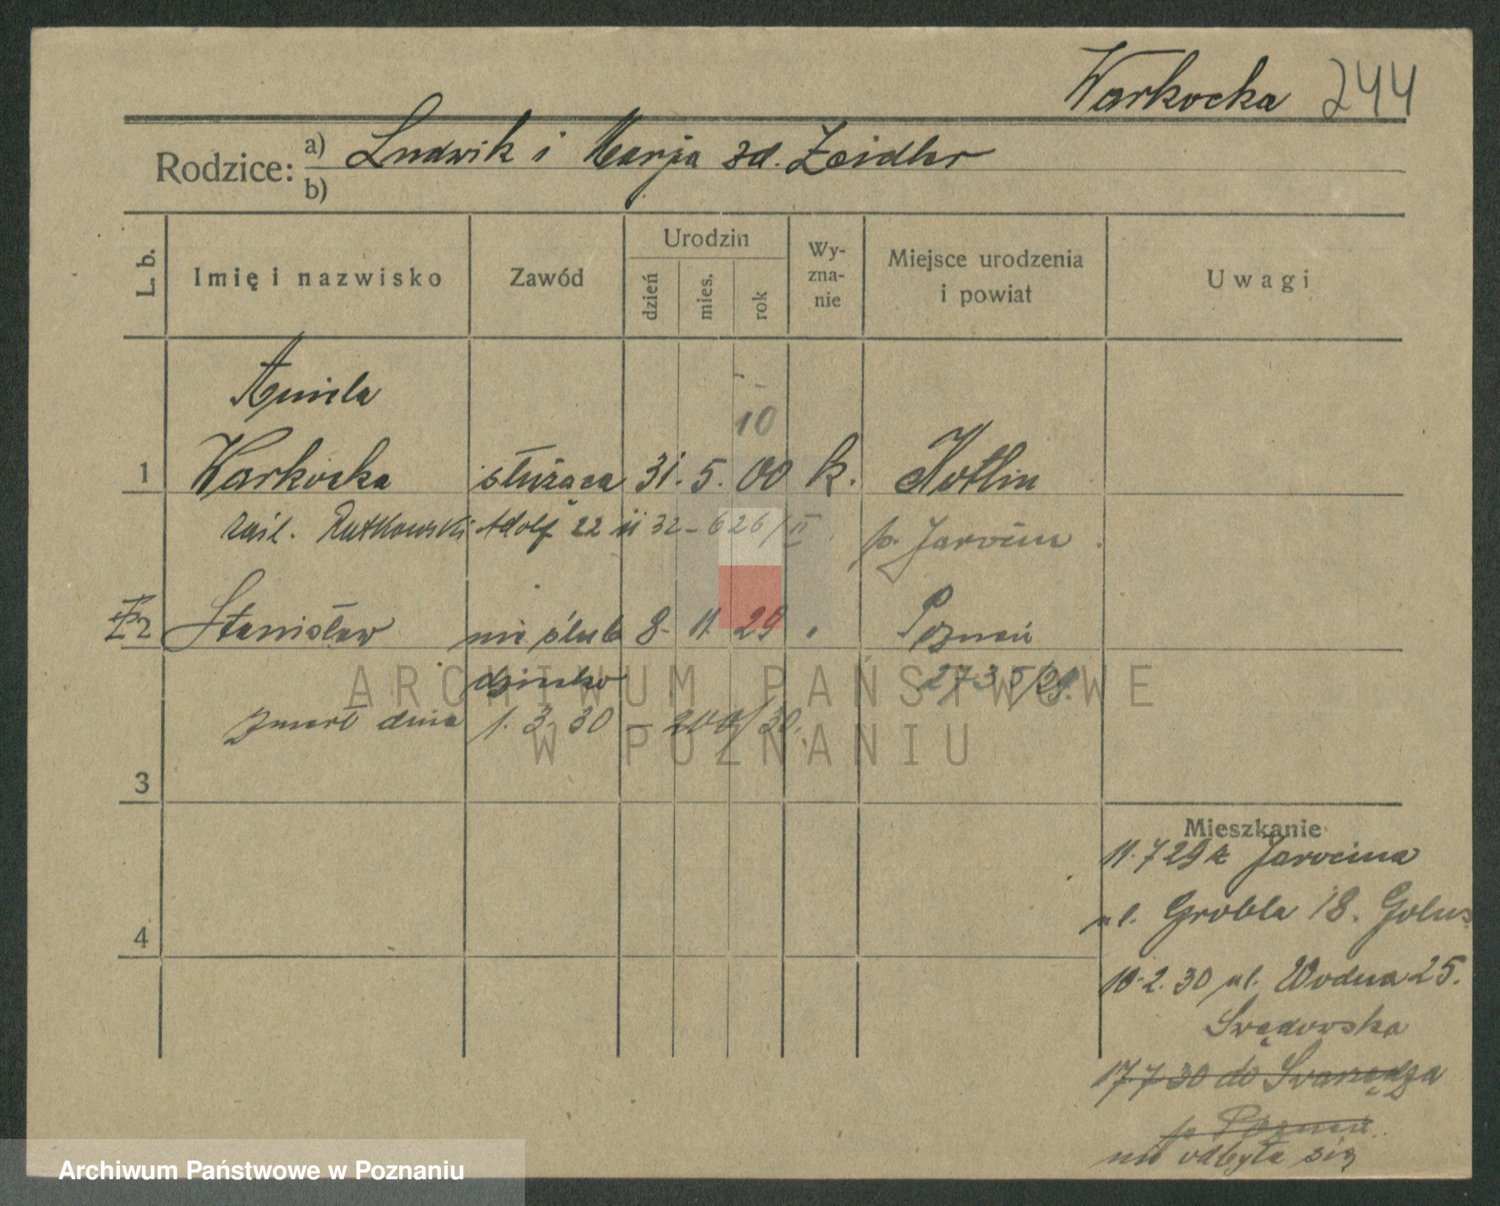 Warkocka 244
Rodzice: a) Ludwik i Marja zd. Zeidler
b)
L. b.
Imię i nazwisko
Zawód
Urodzin
dzień
mies.
rok
Wy-
zna-
nie
Miejsce urodzenia
i powiat
Uwagi
Aniela
10
1 Warkocka służąca 31. 5. 00 k. Kotlin
zaśl. Rutkowski Adolf 22 11 32 - 626/II p. Jarocin
2 Stanisław nie ślub 8. 11. 29 " Poznań
dziecko 2735/29.
zmarł dnia 1. 3. 30 - 200/30.
3
4
Mieszkanie
11.7 29 z Jarocina
ul. Grobla 18. Golus
10.2.30 ul. Wodna 25.
Swędowska
17.7 30 do Swarzędza
p. Poznań
nie odbyła się
ARCHIWUM PAŃSTWOWE
W POZNANIU
Archiwum Państwowe w Poznaniu